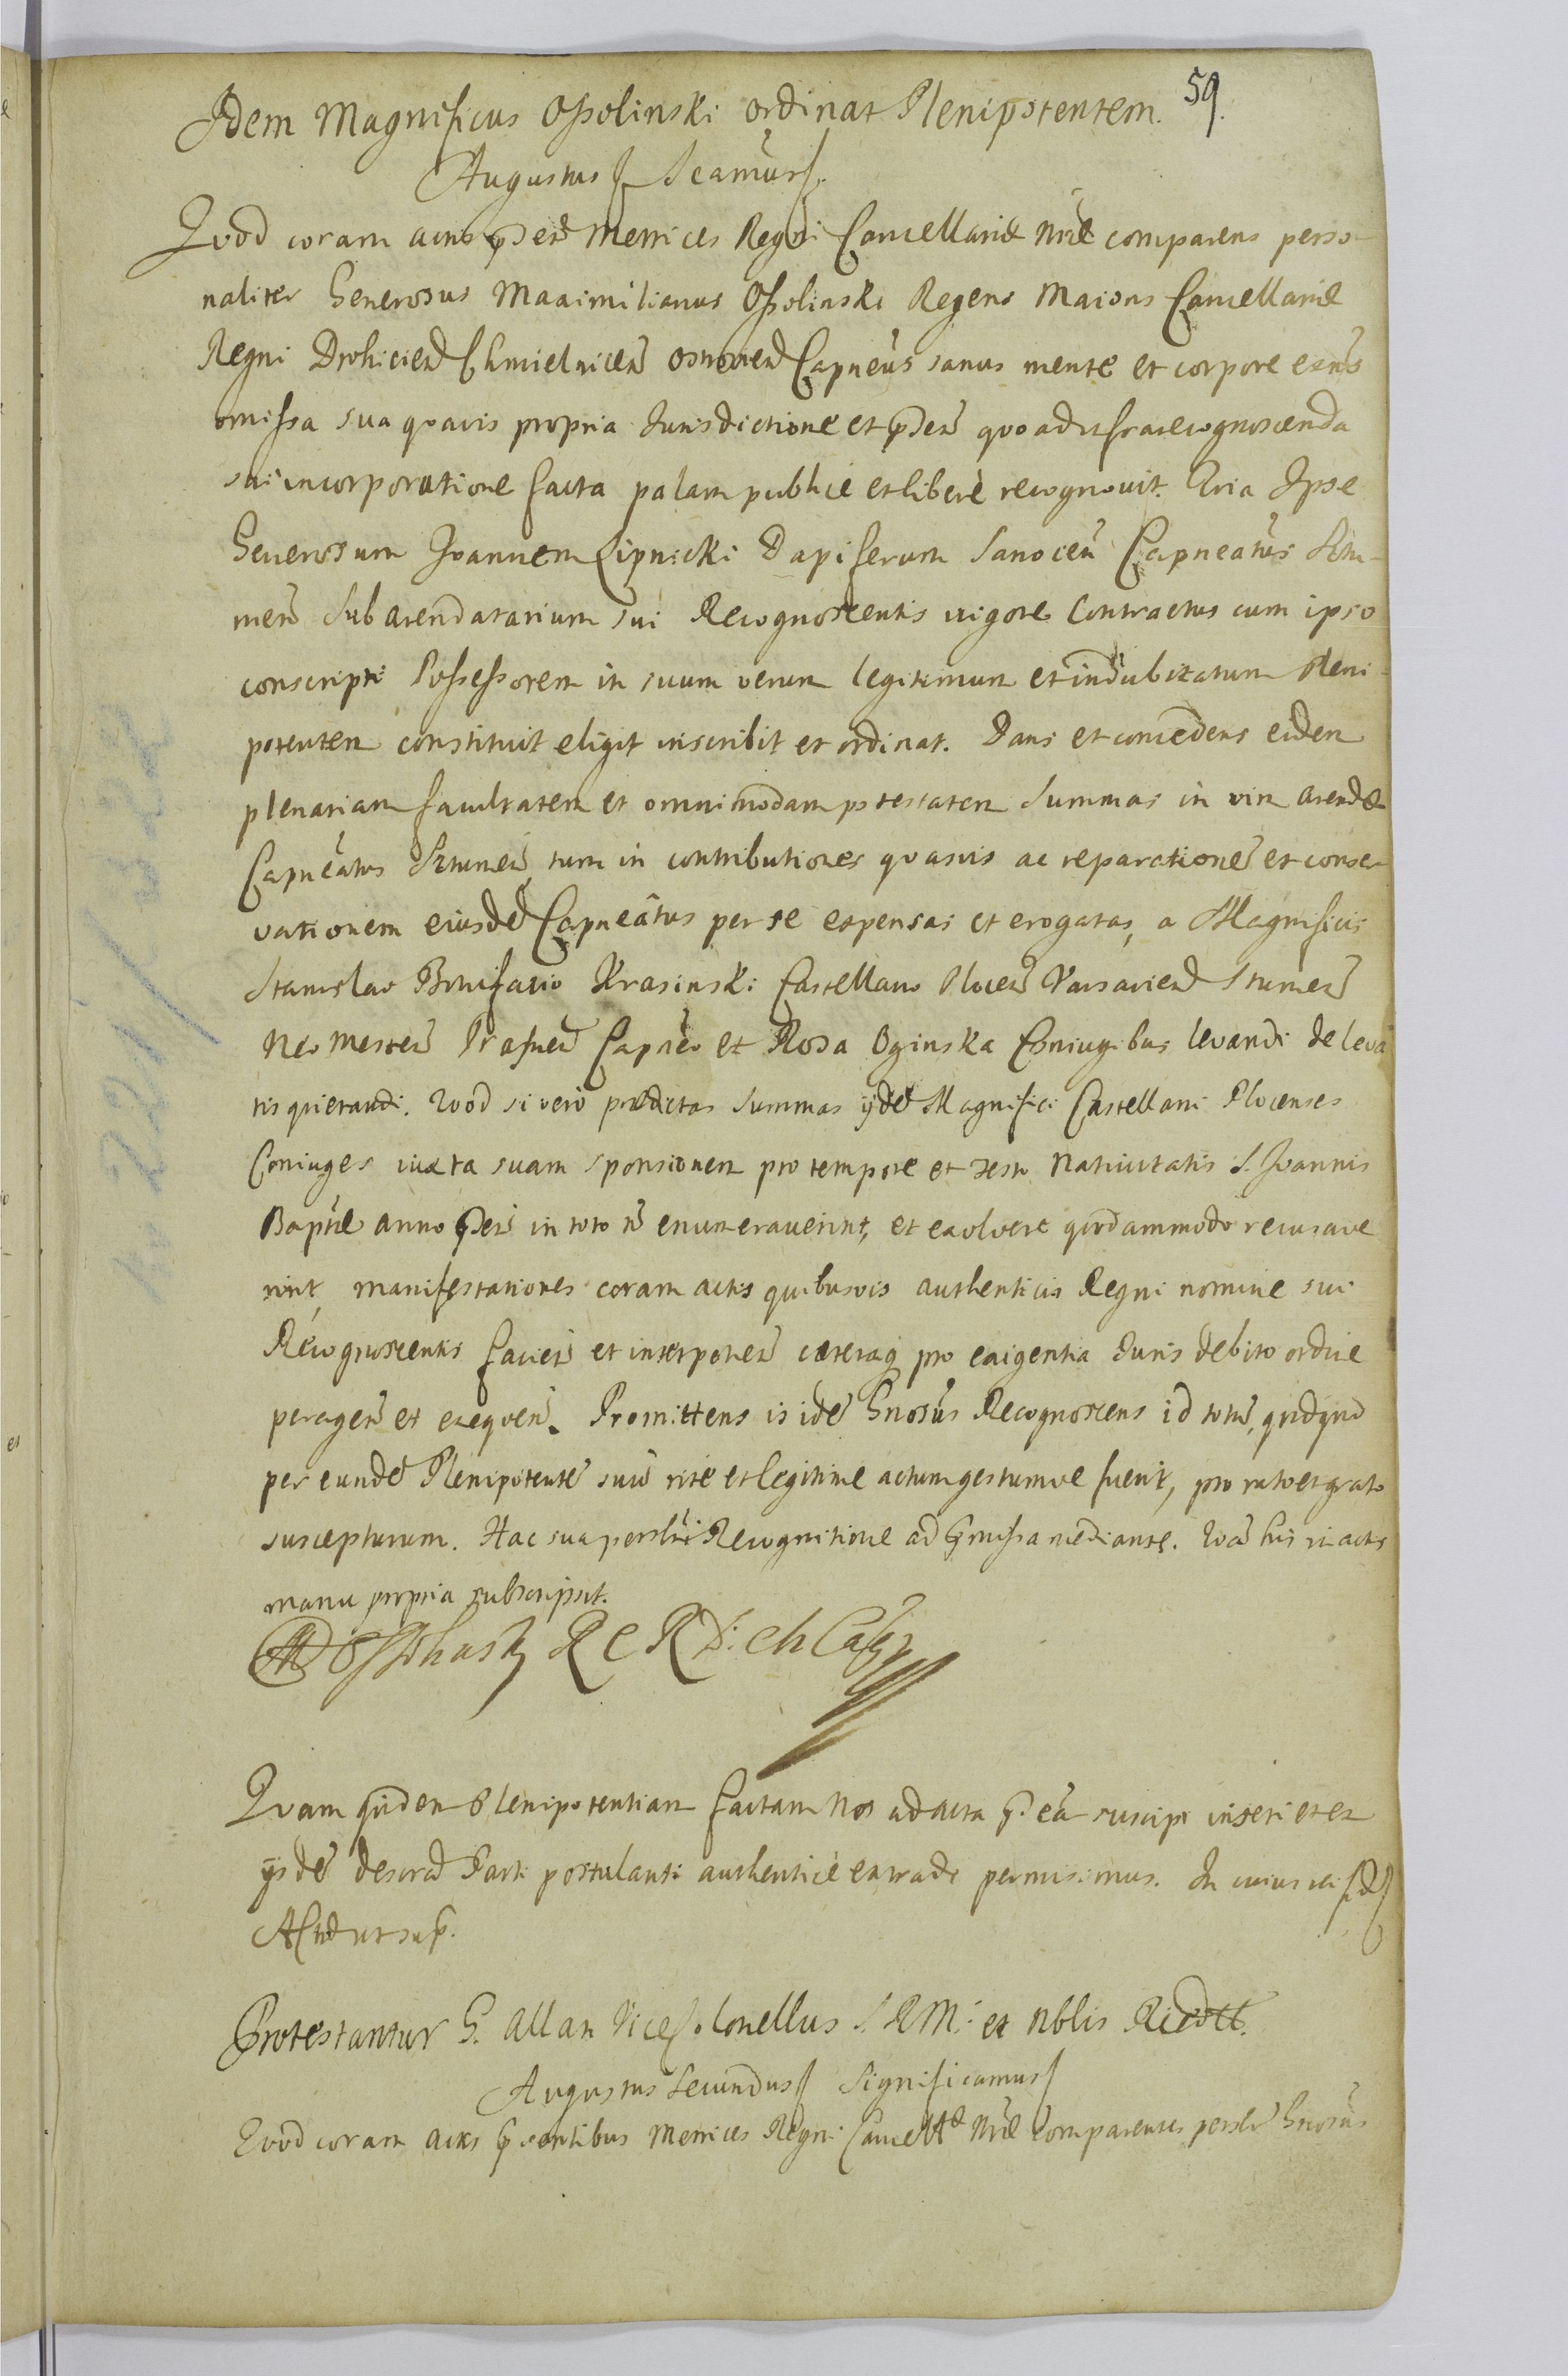 59.
Idem Magnificus Ossolinski ordinat Plenipotentem.
Augustus Scamus
Quod coram actis pñtibus Metrices Regni Cancellariæ Nrae comparens perso-
naliter Generosus Maximilianus Ossolinski Regens Maioris Cancellariæ
Regni Drohicien Chmielnicen Ostrovien Capneus sanus mente et corpore exns
omissa sua quavis propria Jurisdictione et quoad infrarecognoscenda
sui incorporatione facta palam publice et liberè recognovit. Quia Ipse
Generosum Joannem Lipnicki Dapiferum Sanocen Capneatus Stu-
men Subarendatarium sui Recognoscentis vigore Contractus cum ipso
conscripti Possessorem in suum verum legitimum et indubitatum Pleni-
potentem constituit eligit inscribit et ordinat. Dans et concedens eidem
plenariam facultatem et omnimodam potestatem Summas in vim arendæ
Capneatus Sztumen, tum in contributiones quasvis ac reparationem et conser
vationem eiusdem Capneatus per se expensas et erogatas, a Magnificis
Stanislao Bonifacio Krasinski Castellano Plocen Varsavien Stumen
Novomesten Prasnen Capneo et Rosa Oginska Coniugibus levandi de leva
tis quietandi. Quod si vero prædictas Summas ijdem Magnifici Castellani Plocenses
Coniuges iuxta suam sponsionem pro tempore et festo Nativitatis S. Joannis
Baptae anno in toto non enumeraverint, et exolvere quodammodo recusave
rint, manifestationes coram actis quibusvis authenticis Regni nomine sui
Recognoscentis facien et interponen cæteraq pro exigentia Juris debito ordine
peragen et exequen. Promittens is idem Gnosus Recognoscens id totum, quidquid
per eundem Plenipotentem suum rite et legitime actum gestumve fuerit, pro rato et grato
suscepturum. Hac sua personali Recognitione ad præmissa mediante. Quam his in actis
manu propria subscripsit.
M Ossolinsky R C R D: Ch Capn
Quam quidem Plenipotentiam factam Nos ad acta suscipi inseri et ex
ijsdem descrd Parti postulanti authenticè extradi permisimus. In cuius rei fid
Act ut sup.
Protestantur G. Allan Vicecolonellus S. R M: et Nblis
Augustus Secundus Significamus
Quod coram actis præsentibus Metrices Regni Cancellae Nrae Comparentes persler Gnosus